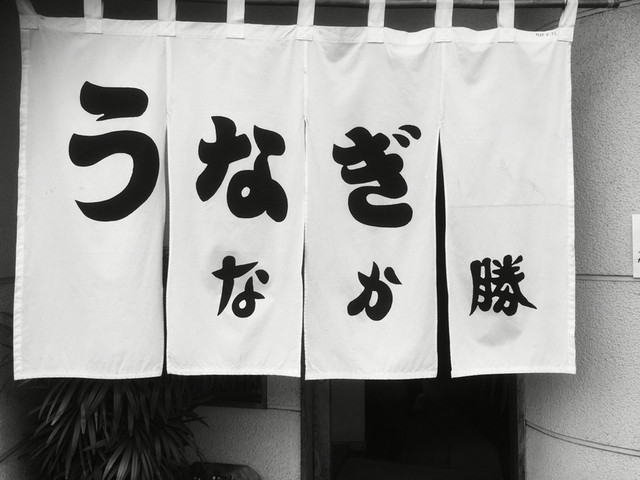 うなぎ
なか勝